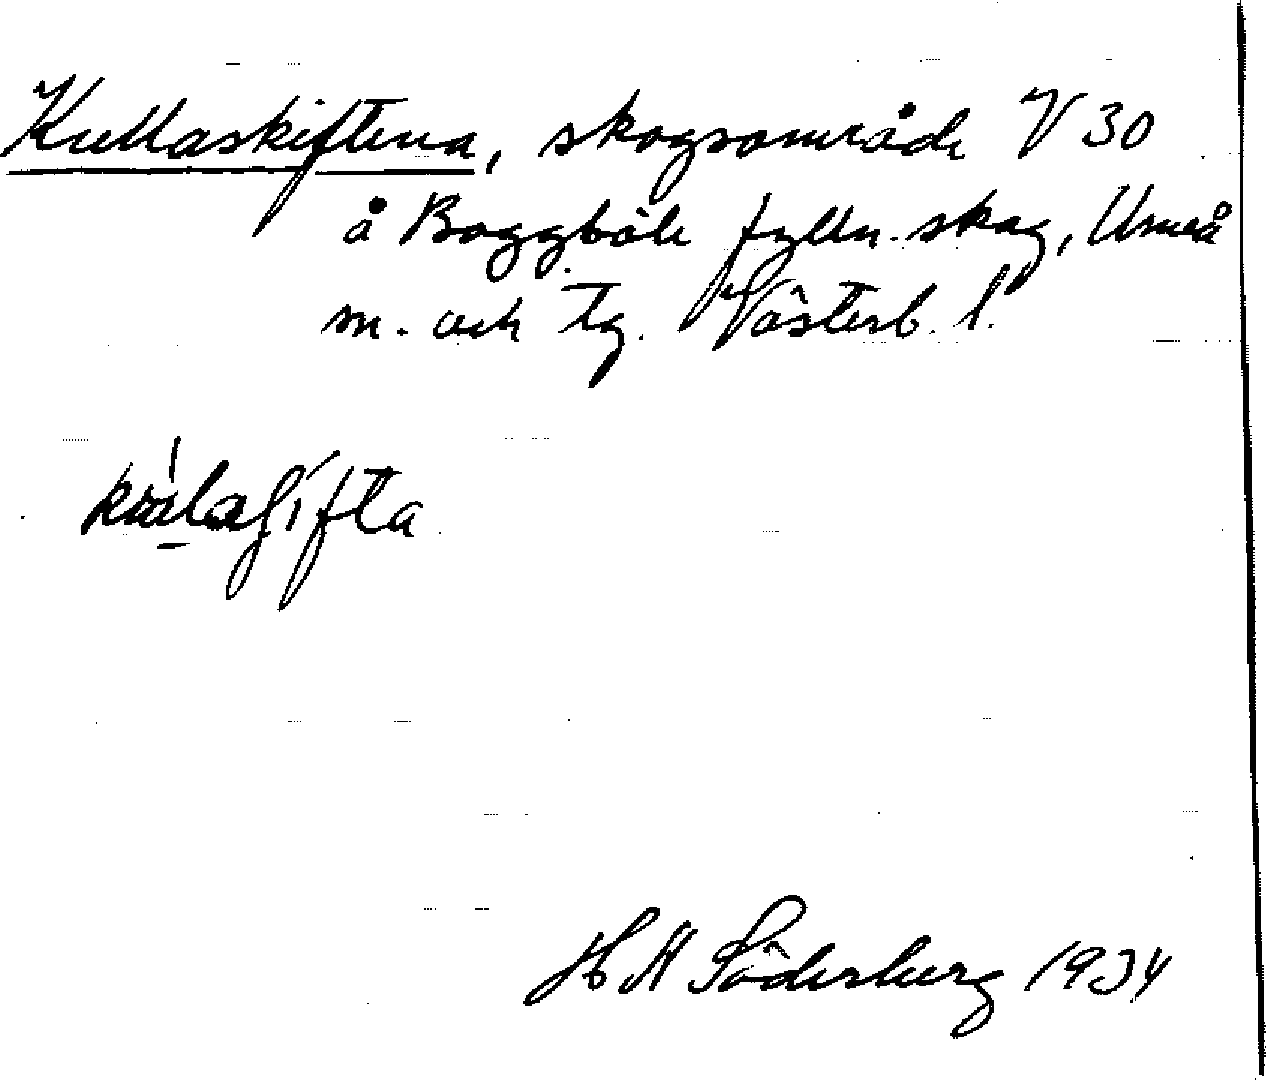 Kullaskiftena, skogsområde V 30
å Baggböle fylln. skog, Umeå
m. och tg. Västerb. l.
H M Söderberg 1934